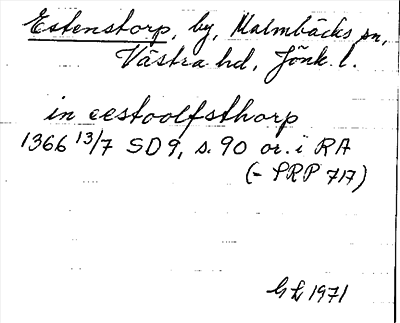 Estenstorp, by, Malmbäcks sn,
Västra hd, Jönk. l.
in eestoolfsthorp
1366 13/7 SD 9, s. 90 or. i RA
(- PRP 717)
GL 1971